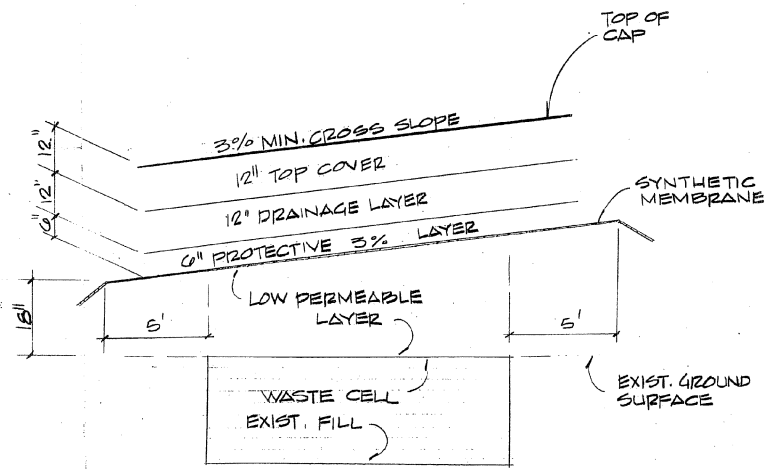 TOP OF
CAP
3% MIN. CROSS SLOPE
12" TOP COVER
12" DRAINAGE LAYER
6" PROTECTIVE 3% LAYER
SYNTHETIC
MEMBRANE
12"
12"
6"
18"
5'
LOW PERMEABLE
LAYER
5'
WASTE CELL
EXIST. FILL
EXIST. GROUND
SURFACE